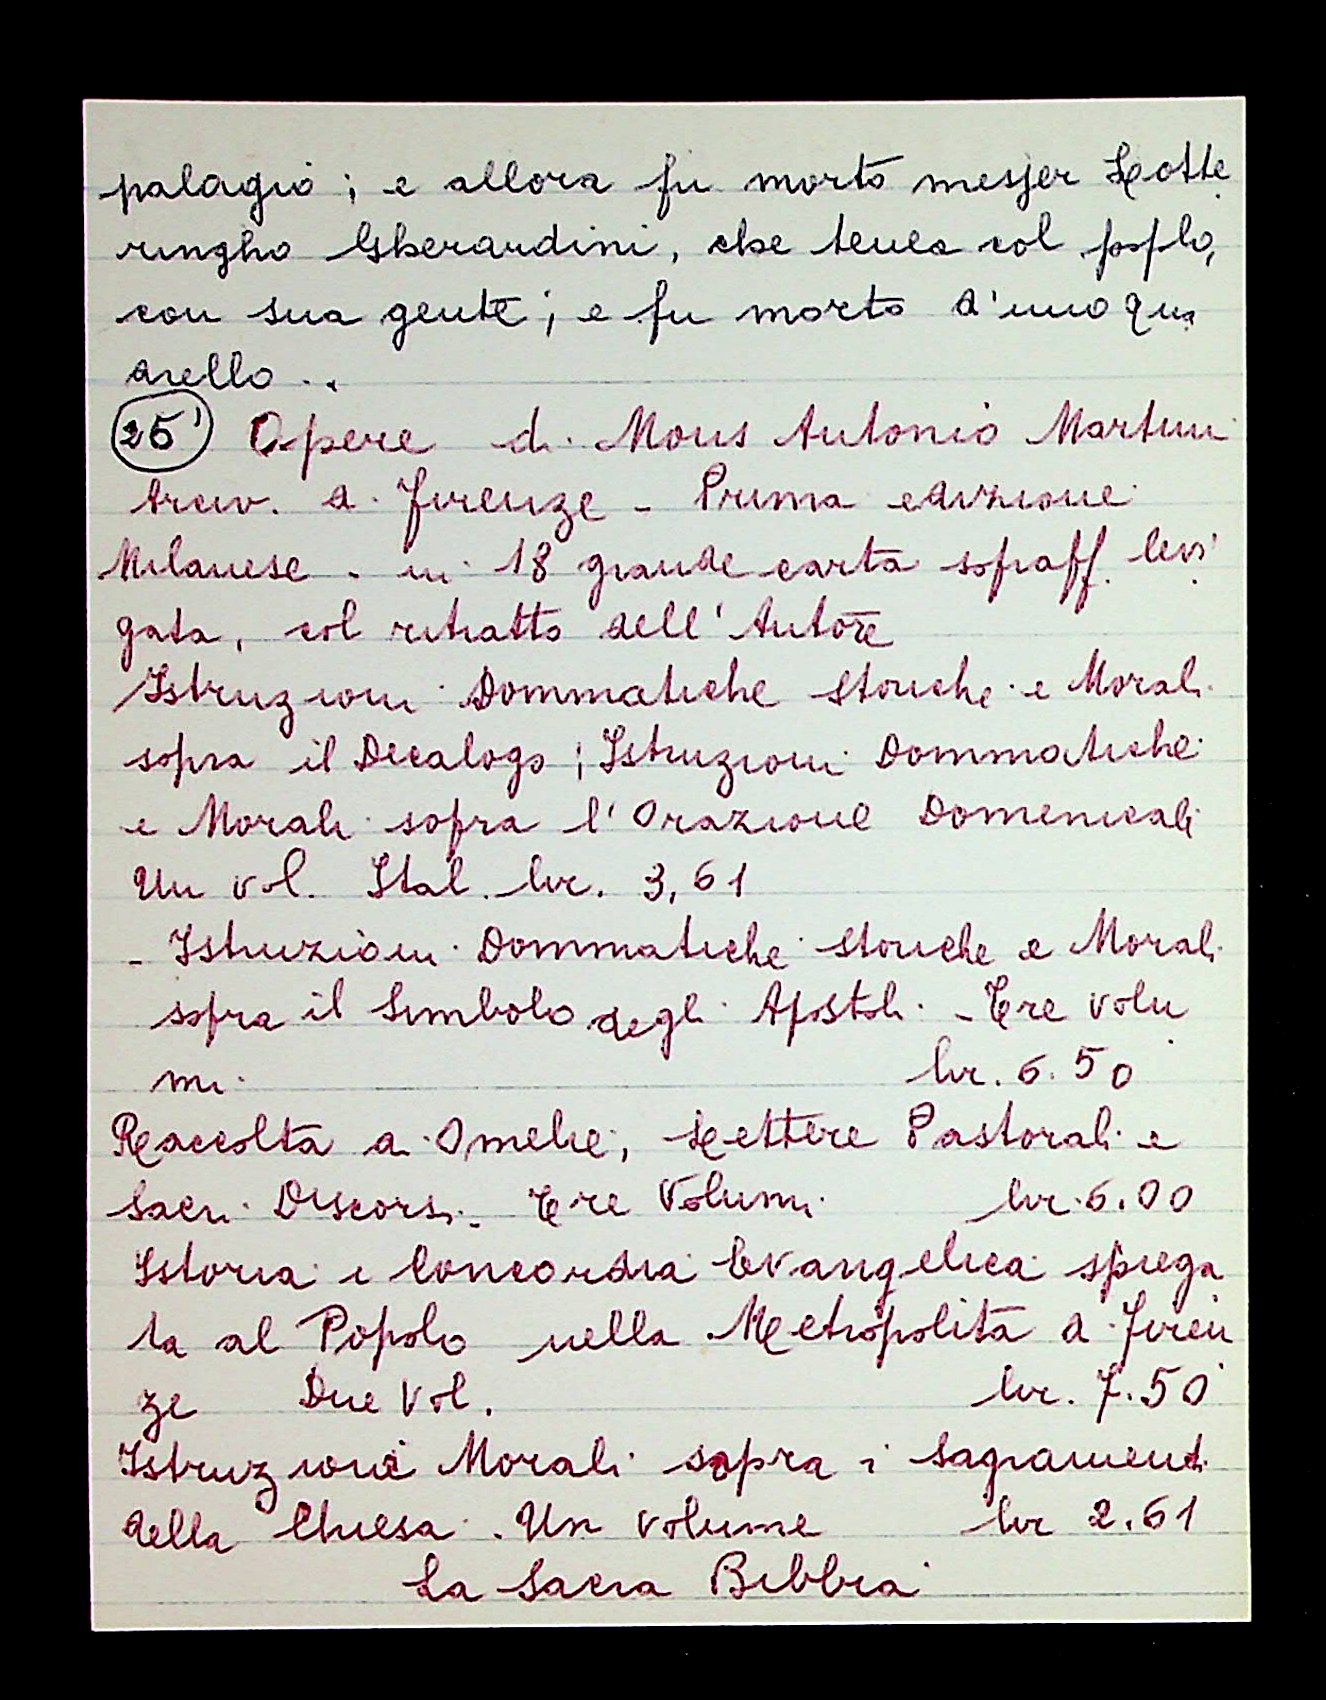 palagio; e allora fu morto messer Lotte
ringho Gherardini, che tenea col poplo,
con sua gente; e fu morto d'uno qua
drello..
25) Opere di Mons Antonio Martini
Arciv. di Firenze - Prima edizione
Milanese. in 18 grande carta sopraff. levi
gata, col ritratto dell'Autore
Istruzioni Dommatiche storiche e Morali
sopra il Decalogo; Istruzioni Dommatiche
e Morali sopra l'Orazione Domenicali
Un vol. Ital. lir. 3,61
- Istruzioni Dommatiche storiche e Morali
sopra il Simbolo degli Apostoli - Tre volu
mi lir. 6.50
Raccolta di Omelie, Lettere Pastorali e
Sacri Discorsi - Tre Volumi lir. 6.00
Istoria e Concordia Evangelica spiega
ta al Popolo nella Metropolita di Firen
ze Due Vol. lir. 7.50
Istruzioni Morali sopra i Sagramenti
della Chiesa. Un volume lir 2.61
La Sacra Bibbia